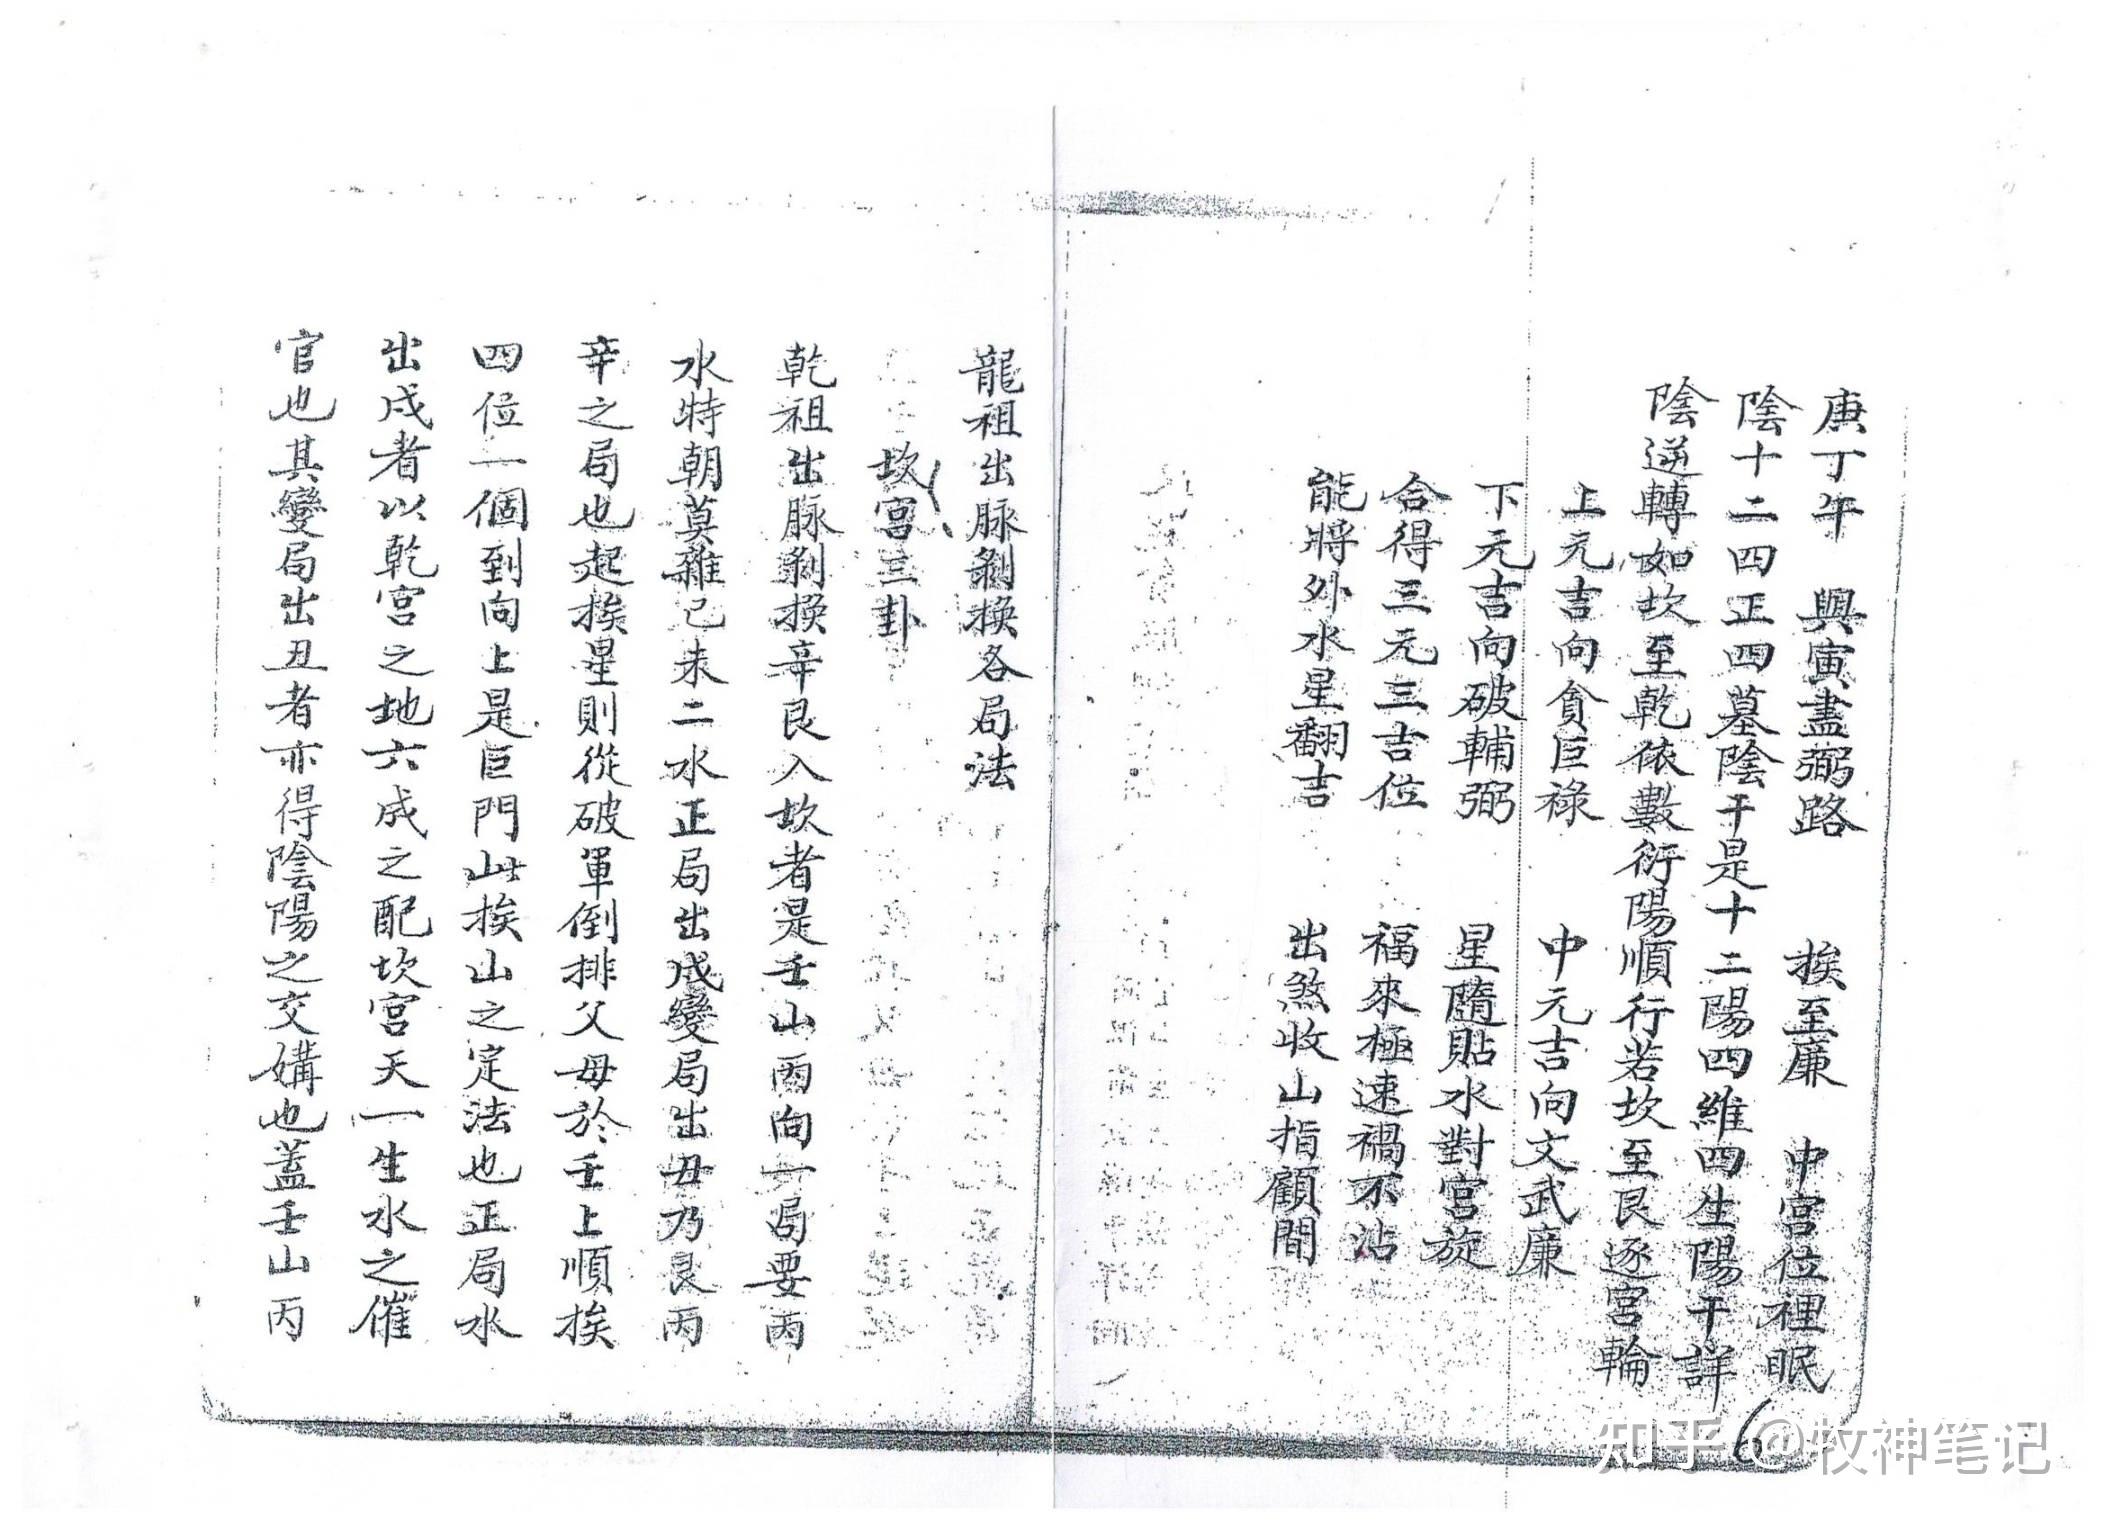 庚丁午　興寅盡弼路　挨至廉　中宮位裡眠
陰十二四正四墓陰干是十二陽四維四生陽干詳
陰逆轉如坎至乾依數衍陽順行若坎至艮逐宮輪
上元吉向貪巨祿　中元吉向文武廉
下元吉向破輔弼　星隨貼水對宮旋
合得三元三吉位　福來極速禍不沾
能將外水星翻吉　出煞收山指顧間
龍祖出脉剝換各局法
坎宮三卦
乾祖出脉剝換辛艮入坎者是壬山丙向一局要丙
水特朝莫雜巳未二水正局出戍變局出丑乃艮丙
辛之局也起挨星則從破軍倒排父母於壬上順挨
四位一個到向上是巨門此挨山之定法也正局水
出戍者以乾宮之地六成之配坎宮天一生水之催
官也其變局出丑者亦得陰陽之交媾也蓋壬山丙
6
知乎 @牧神笔记